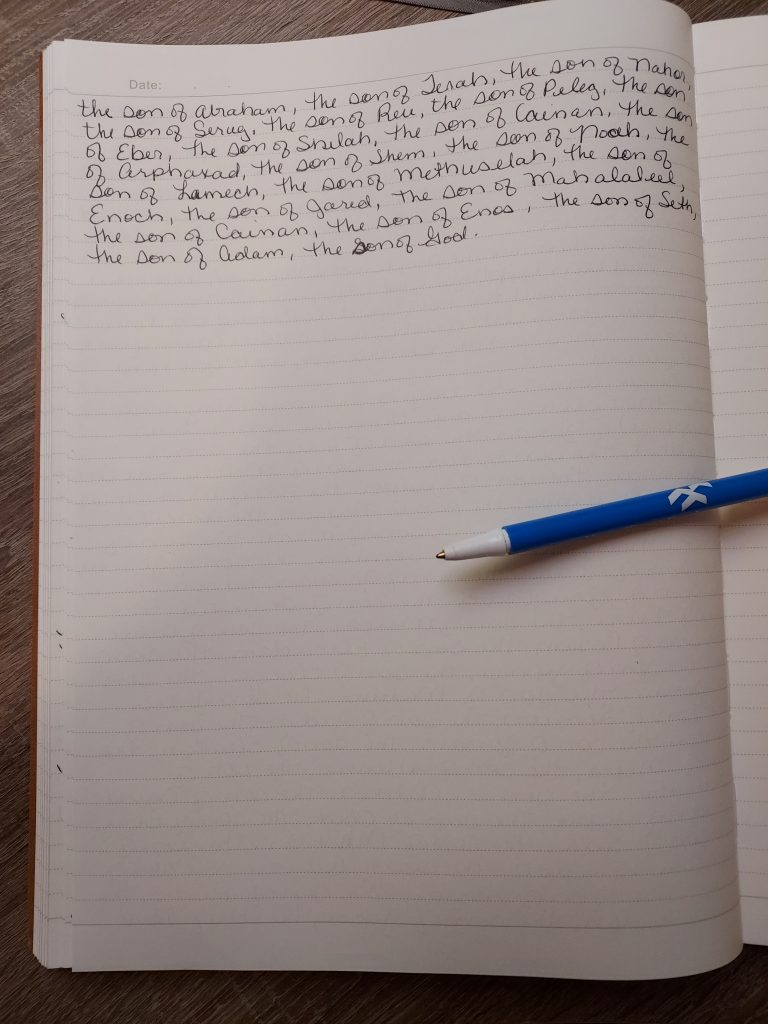 Date:
the son of Abraham, the son of Terah, the son of Nahor,
the son of Serug, the son of Reu, the son of Peleg, the son
of Eber, the son of Shelah, the son of Cainan, the son
of Arphaxad, the son of Shem, the son of Noah, the
son of Lamech, the son of Methuselah, the son of
Enoch, the son of Jared, the son of Mahalaleel,
the son of Cainan, the son of Enos, the son of Seth,
the son of Adam, the son of God.